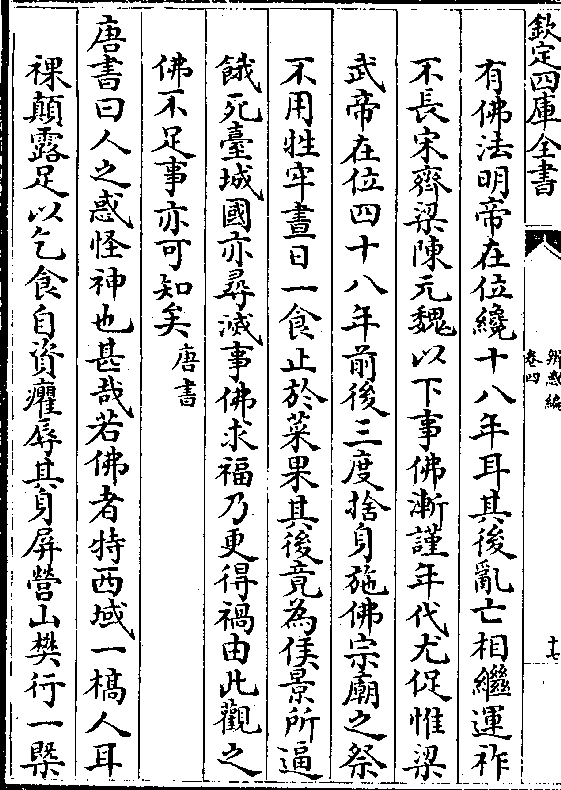 欽定四庫全書
辨惑編
卷四
十七
有佛法明帝在位纔十八年耳其後亂亡相繼運祚
不長宋齊梁陳元魏以下事佛漸謹年代尤促惟梁
武帝在位四十八年前後三度捨身施佛宗廟之祭
不用牲牢晝日一食止於菜果其後竟為侯景所逼
餓死臺城國亦尋滅事佛求福乃更得禍由此觀之
佛不足事亦可知矣唐書
唐書曰人之惑怪神也甚哉若佛者特西域一槁人耳
裸顛露足以乞食自資癯辱其身屏營山樊行一槩